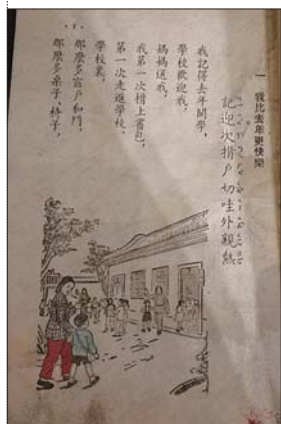 一 我比去年更快樂
記迎次揹戶切哇外觀然
我記得去年開學，
學校歡迎我，
媽媽送我，
我第一次揹上書包，
第一次走進學校。
學校裏，
那麼多窗戶和門，
那麼多桌子、椅子，